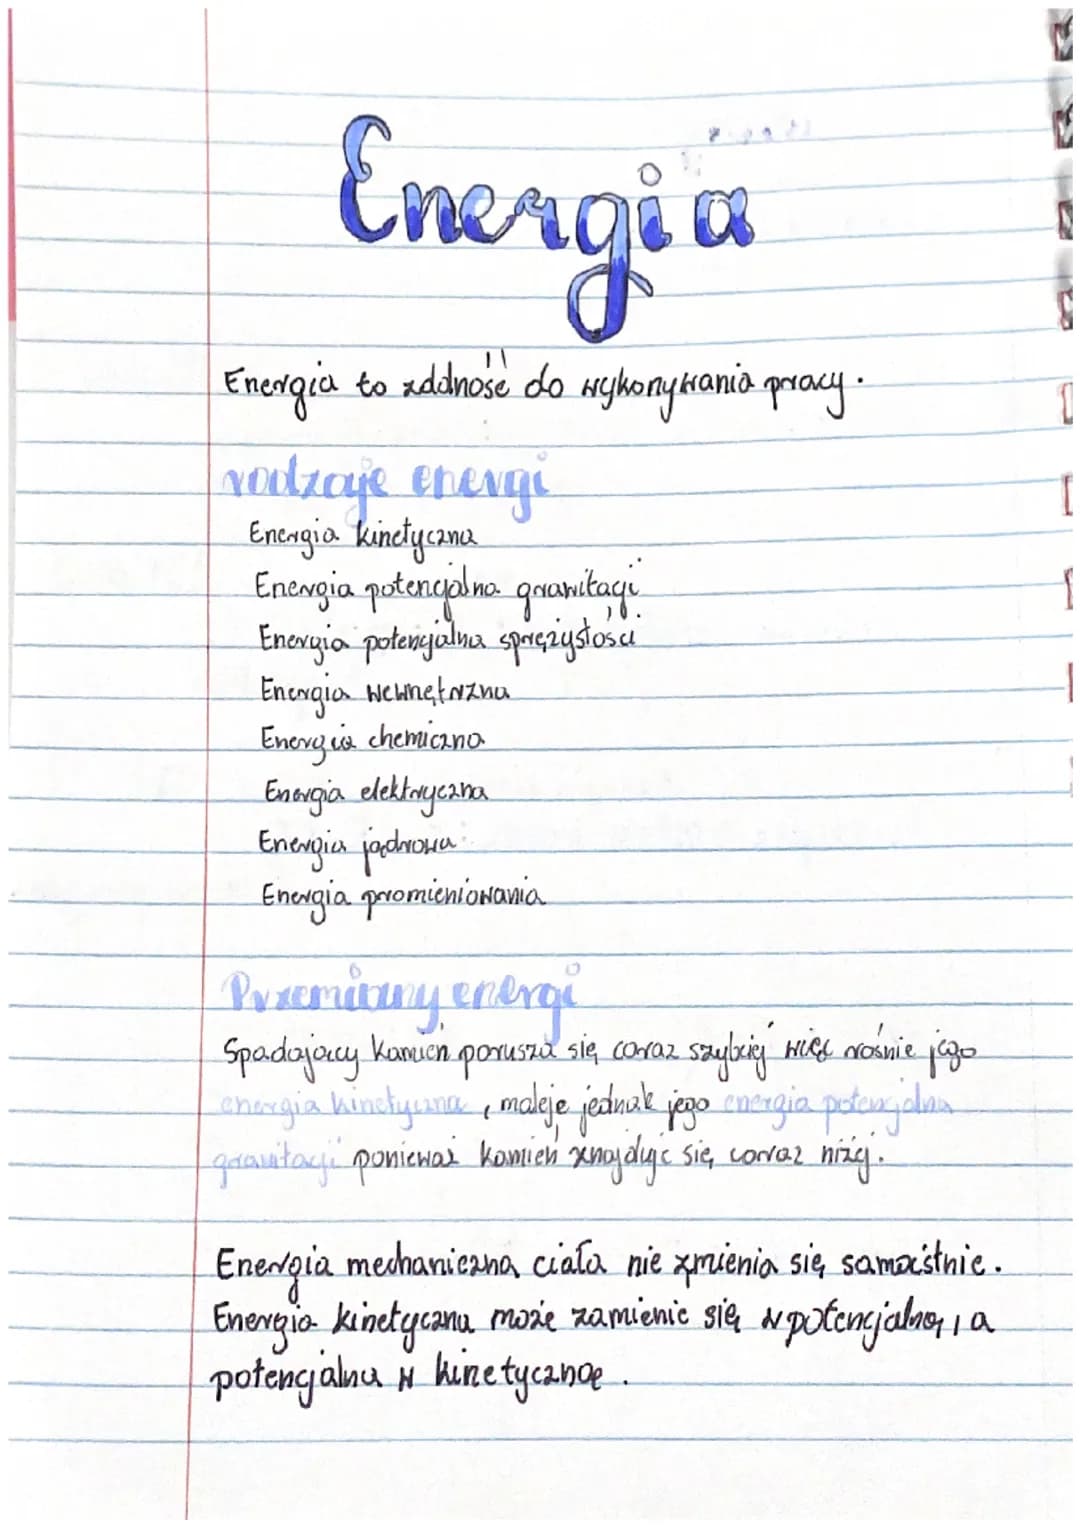 Energia
Energia to zdolność do wykonywania pracy.
rodzaje energi
Energia kinetyczna
Energia potencjalna grawitacji
Energia potencjalna sprężystości
Energia wewnętrzna
Energia chemiczna
Energia elektryczna
Energia jądrowa
Energia promieniowania
Przemiany energi
Spadający kamień porusza się coraz szybciej więc rośnie jego
energia kinetyczna, maleje jednak jego energia potencjalna
grawitacji ponieważ kamień znajduje się coraz niżej.
Energia mechaniczna ciała nie zmienia się samoistnie.
Energia kinetyczna może zamienić się w potencjalną, a
potencjalna w kinetyczną.